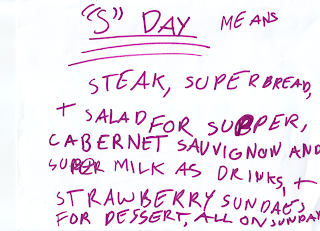 "S" DAY MEANS
STEAK, SUPERBREAD,
+ SALAD FOR SUPPER,
CABERNET SAUVIGNON AND
SUPER MILK AS DRINKS, +
STRAWBERRY SUNDAES
FOR DESSERT, ALL ON SUNDAY